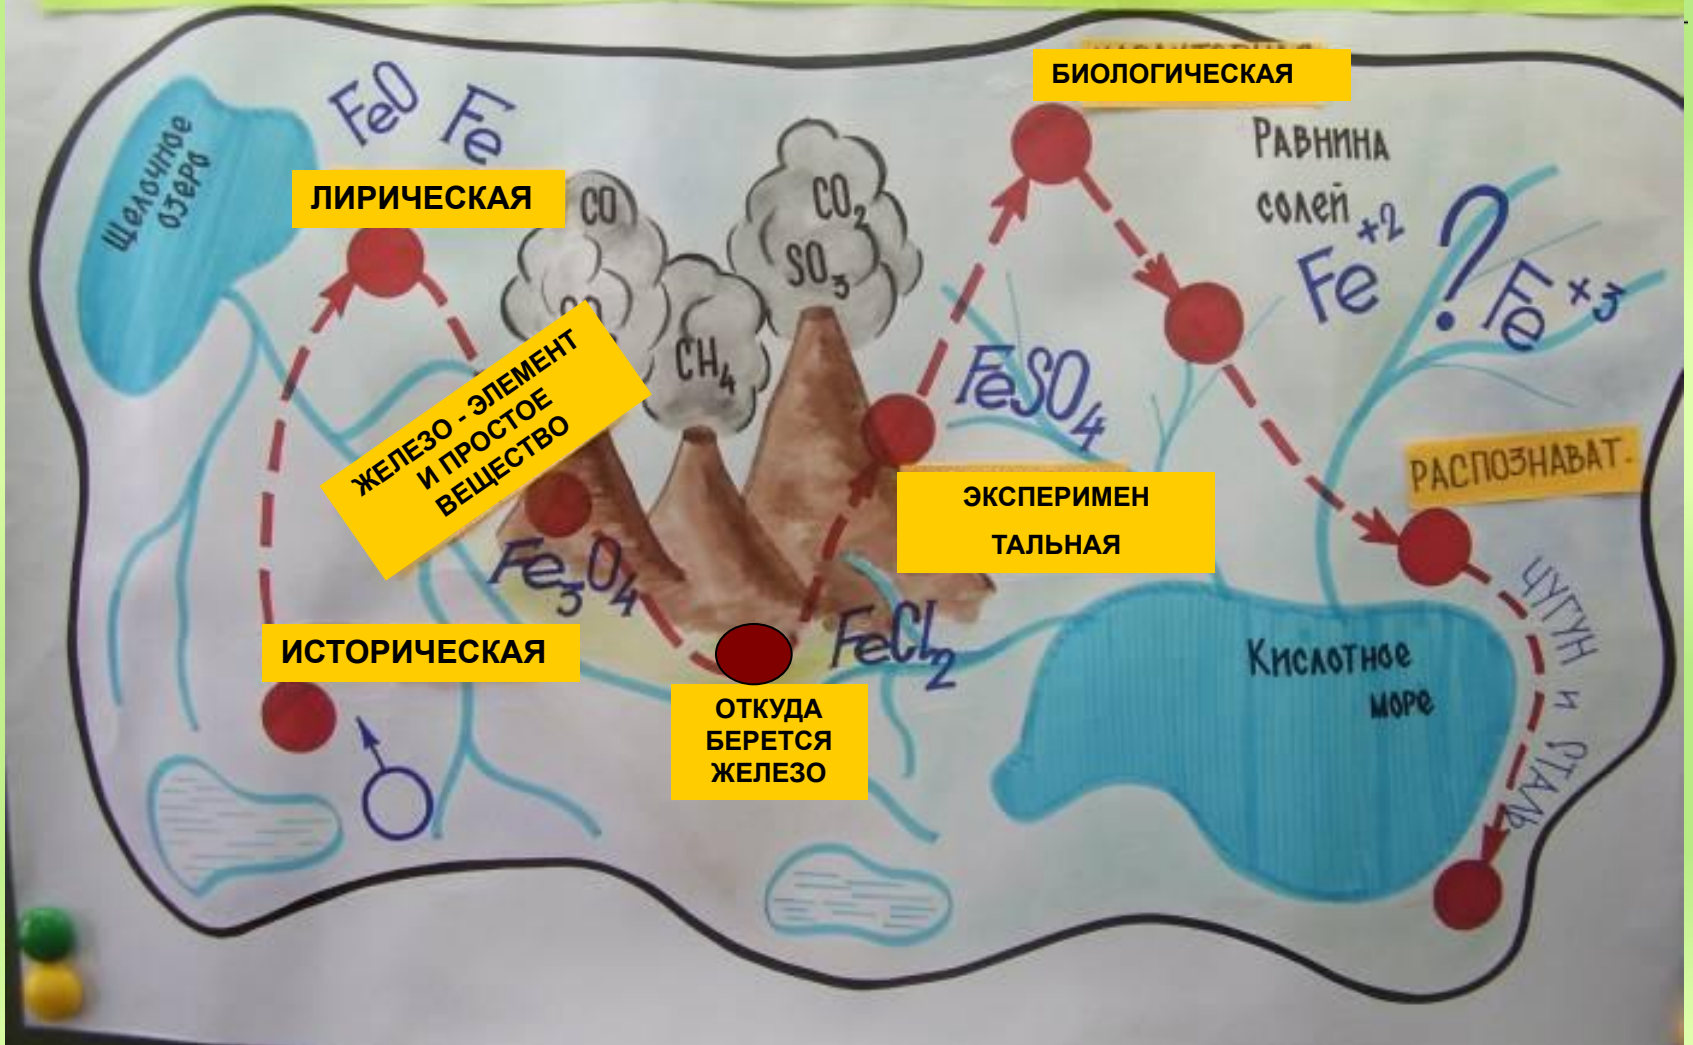 БИОЛОГИЧЕСКАЯ
FeO
Fe
Щелочное
озеро
ЛИРИЧЕСКАЯ
CO
CO₂
SO₃
CH₄
Равнина
солей
Fe⁺²
?
Fe⁺³
ЖЕЛЕЗО - ЭЛЕМЕНТ
И ПРОСТОЕ
ВЕЩЕСТВО
FeSO₄
РАСПОЗНАВАТ.
ЭКСПЕРИМЕН
ТАЛЬНАЯ
Fe₃O₄
FeCl₂
ИСТОРИЧЕСКАЯ
ОТКУДА
БЕРЕТСЯ
ЖЕЛЕЗО
Кислотное
море
ЧУГУН И СТАЛЬ